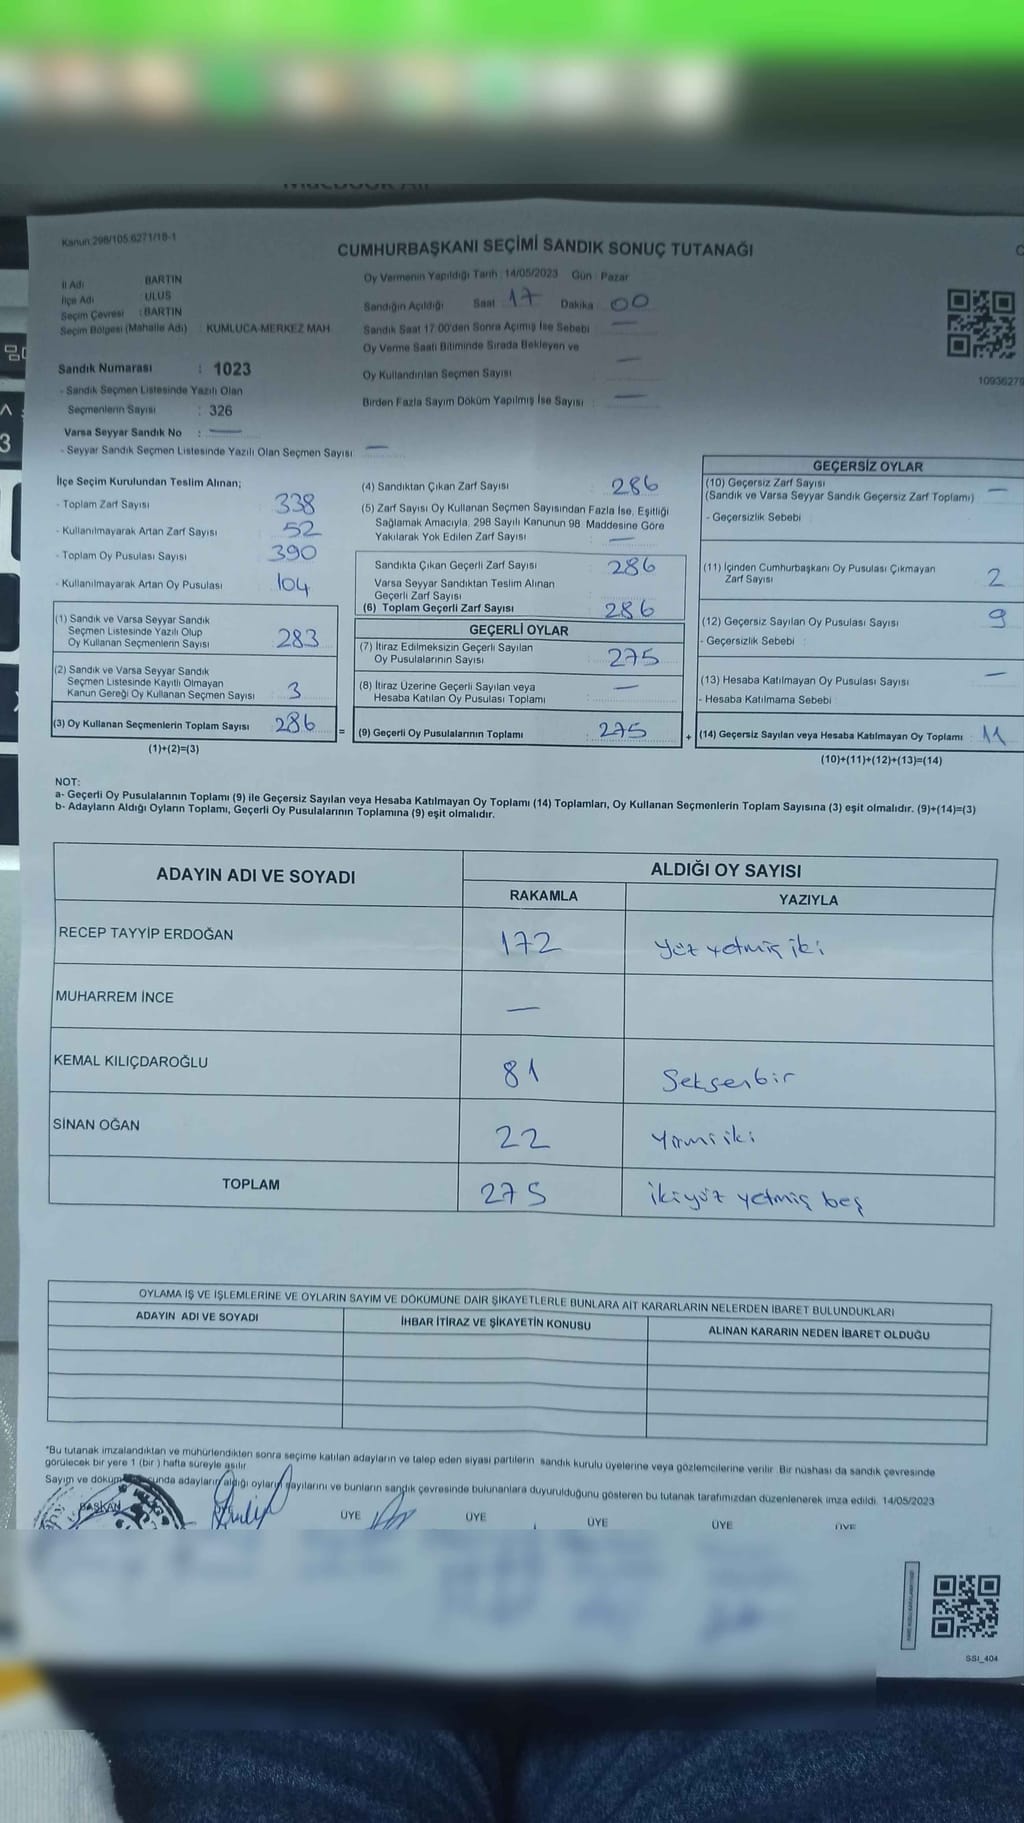 Kanun:298/105,6271/18-1
CUMHURBAŞKANI SEÇİMİ SANDIK SONUÇ TUTANAĞI
İl Adı BARTIN
İlçe Adı ULUS
Seçim Çevresi : BARTIN
Seçim Bölgesi (Mahalle Adı) : KUMLUCA-MERKEZ MAH.
Sandık Numarası : 1023
- Sandık Seçmen Listesinde Yazılı Olan
Seçmenlerin Sayısı : 326
Varsa Seyyar Sandık No : —
- Seyyar Sandık Seçmen Listesinde Yazılı Olan Seçmen Sayısı —
Oy Vermenin Yapıldığı Tarih : 14/05/2023 Gün : Pazar
Sandığın Açıldığı Saat 17 Dakika 00
Sandık Saat 17:00'den Sonra Açımış İse Sebebi —
Oy Verme Saati Bitiminde Sırada Bekleyen ve
Oy Kullandırılan Seçmen Sayısı —
Birden Fazla Sayım Döküm Yapılmış İse Sayısı : —
10936279
İlçe Seçim Kurulundan Teslim Alınan;
- Toplam Zarf Sayısı 338
- Kullanılmayarak Artan Zarf Sayısı 52
- Toplam Oy Pusulası Sayısı 390
- Kullanılmayarak Artan Oy Pusulası 104
(1) Sandık ve Varsa Seyyar Sandık
Seçmen Listesinde Yazılı Olup
Oy Kullanan Seçmenlerin Sayısı 283
(2) Sandık ve Varsa Seyyar Sandık
Seçmen Listesinde Kayıtlı Olmayan
Kanun Gereği Oy Kullanan Seçmen Sayısı 3
(3) Oy Kullanan Seçmenlerin Toplam Sayısı 286
(1)+(2)=(3)
(4) Sandıktan Çıkan Zarf Sayısı 286
(5) Zarf Sayısı Oy Kullanan Seçmen Sayısından Fazla İse, Eşitliği
Sağlamak Amacıyla, 298 Sayılı Kanunun 98. Maddesine Göre
Yakılarak Yok Edilen Zarf Sayısı —
Sandıkta Çıkan Geçerli Zarf Sayısı 286
Varsa Seyyar Sandıktan Teslim Alınan
Geçerli Zarf Sayısı
(6) Toplam Geçerli Zarf Sayısı 286
GEÇERLİ OYLAR
(7) İtiraz Edilmeksizin Geçerli Sayılan
Oy Pusulalarının Sayısı 275
(8) İtiraz Üzerine Geçerli Sayılan veya
Hesaba Katılan Oy Pusulası Toplamı —
= (9) Geçerli Oy Pusulalarının Toplamı 275
GEÇERSİZ OYLAR
(10) Geçersiz Zarf Sayısı —
(Sandık ve Varsa Seyyar Sandık Geçersiz Zarf Toplamı)
- Geçersizlik Sebebi :
(11) İçinden Cumhurbaşkanı Oy Pusulası Çıkmayan
Zarf Sayısı 2
(12) Geçersiz Sayılan Oy Pusulası Sayısı 9
- Geçersizlik Sebebi :
(13) Hesaba Katılmayan Oy Pusulası Sayısı —
- Hesaba Katılmama Sebebi :
+ (14) Geçersiz Sayılan veya Hesaba Katılmayan Oy Toplamı : 11
(10)+(11)+(12)+(13)=(14)
NOT:
a- Geçerli Oy Pusulalarının Toplamı (9) ile Geçersiz Sayılan veya Hesaba Katılmayan Oy Toplamı (14) Toplamları, Oy Kullanan Seçmenlerin Toplam Sayısına (3) eşit olmalıdır. (9)+(14)=(3)
b- Adayların Aldığı Oyların Toplamı, Geçerli Oy Pusulalarının Toplamına (9) eşit olmalıdır.
ADAYIN ADI VE SOYADI ALDIĞI OY SAYISI
RAKAMLA YAZIYLA
RECEP TAYYİP ERDOĞAN 172 Yüz yetmiş iki
MUHARREM İNCE —
KEMAL KILIÇDAROĞLU 81 Seksenbir
SİNAN OĞAN 22 Yirmi iki
TOPLAM 275 ikiyüz yetmiş beş
OYLAMA İŞ VE İŞLEMLERİNE VE OYLARIN SAYIM VE DÖKÜMÜNE DAİR ŞİKAYETLERLE BUNLARA AİT KARARLARIN NELERDEN İBARET BULUNDUKLARI
ADAYIN ADI VE SOYADI İHBAR İTİRAZ VE ŞİKAYETİN KONUSU ALINAN KARARIN NEDEN İBARET OLDUĞU
*Bu tutanak imzalandıktan ve mühürlendikten sonra seçime katılan adayların ve talep eden siyasi partilerin sandık kurulu üyelerine veya gözlemcilerine verilir. Bir nüshası da sandık çevresinde
görülecek bir yere 1 (bir) hafta süreyle asılır.
Sayım ve döküm adayların aldığı oyların sayılarını ve bunların sandık çevresinde bulunanlara duyurulduğunu gösteren bu tutanak tarafımızdan düzenlenerek imza edildi. 14/05/2023
BAŞKAN ÜYE ÜYE ÜYE ÜYE ÜYE
SSI_404